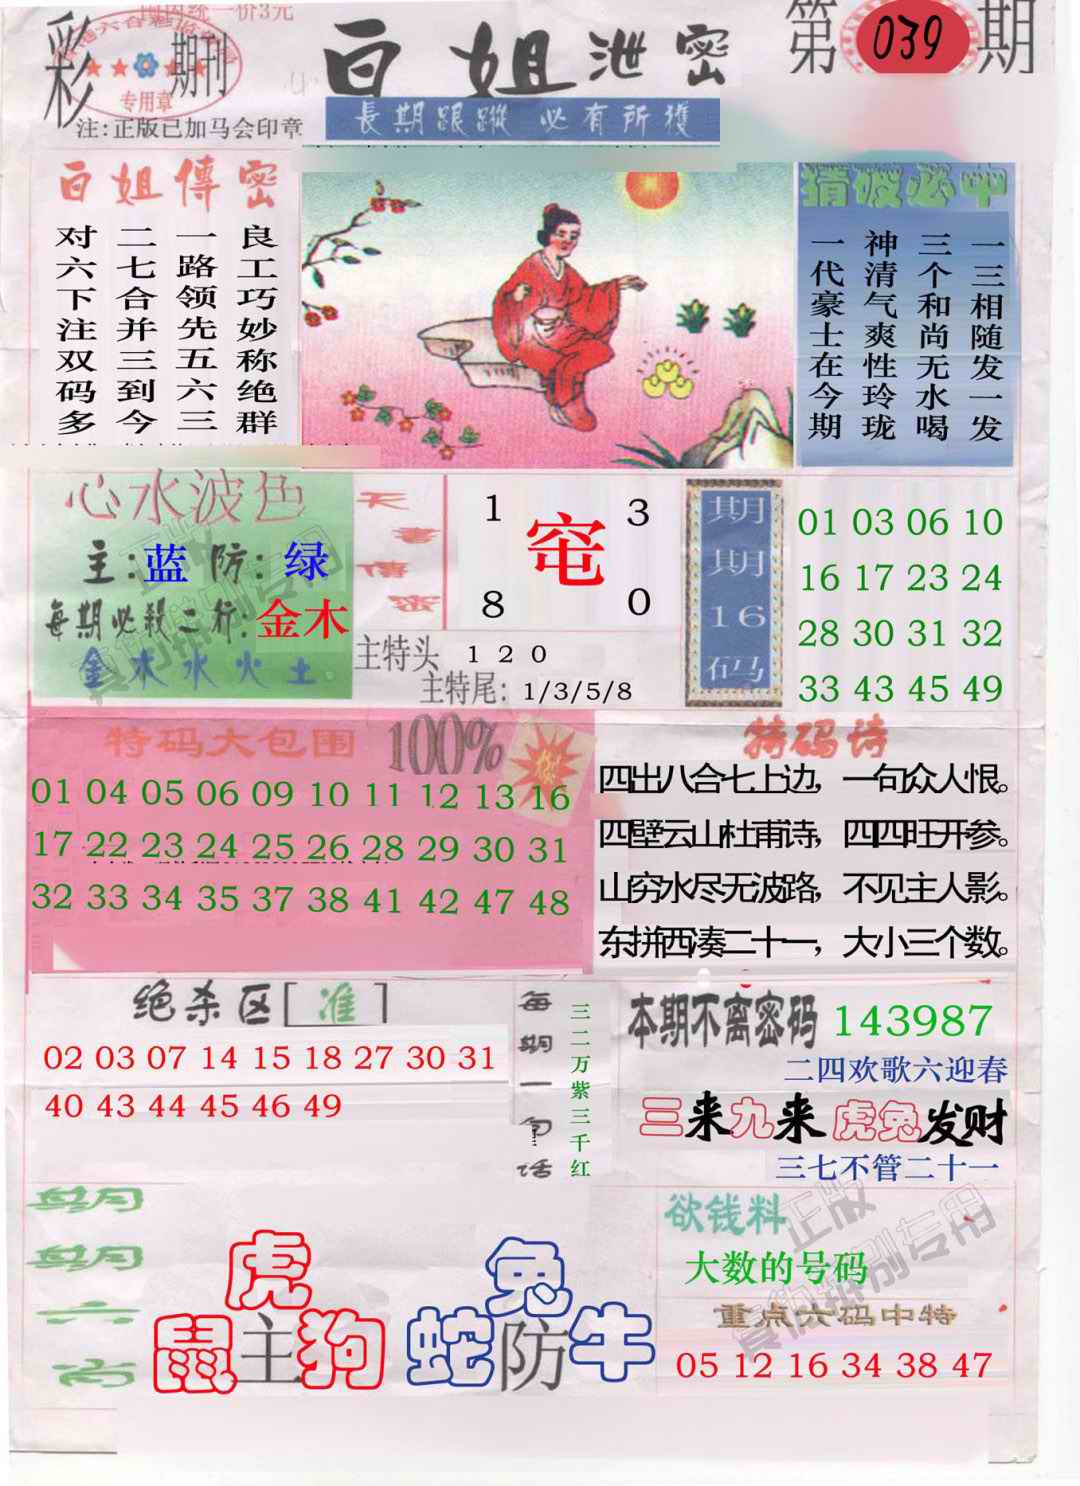 国统一价3元
彩
期刊
专用章
注:正版已加马会印章
白姐泄密
第039期
長期跟蹤 必有所獲
白姐傳密
良工巧妙称绝群
一路领先五六三
二七合并三到今
对六下注双码多
猜破必中
一三相随发一发
三个和尚无水喝
神清气爽性玲珑
一代豪士在今期
心水波色
主:蓝 防:绿
每期必殺二行:金木
金木水火土
天書傳密
1 3
窀
8 0
主特头 1 2 0
主特尾: 1/3/5/8
期期16码
01 03 06 10
16 17 23 24
28 30 31 32
33 43 45 49
特码大包围 100%
01 04 05 06 09 10 11 12 13 16
17 22 23 24 25 26 28 29 30 31
32 33 34 35 37 38 41 42 47 48
特码诗
四出八合七上边，一句众人恨。
四壁云山杜甫诗，四四旺开参。
山穷水尽无波路，不见主人影。
东拼西凑二十一，大小三个数。
绝杀区[准]
02 03 07 14 15 18 27 30 31
40 43 44 45 46 49
每期一句话
三二万紫三千红
本期不离密码 143987
二四欢歌六迎春
三来九来 虎兔发财
三七不管二十一
期期六肖
虎
鼠主狗
兔
蛇防牛
欲钱料
大数的号码
重点六码中特
05 12 16 34 38 47